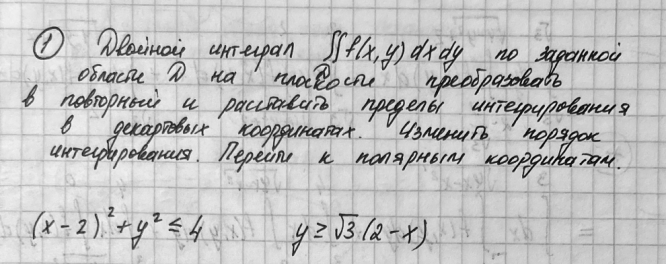 ① Двойной интеграл ∬f(x,y) dx dy по заданной
области D на плоскости преобразовать
в повторный и расставить пределы интегрирования
в декартовых координатах. Изменить порядок
интегрирования. Перейти к полярным координатам.
(x-2)²+y² ≤ 4 y ≥ √3 (2-x)